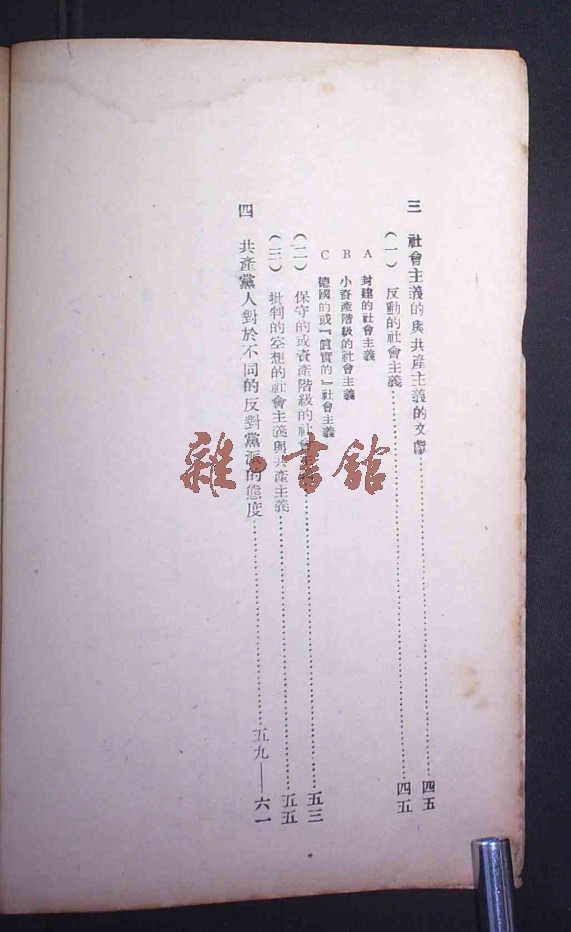 三　社會主義的與共產主義的文獻……四五
(一)　反動的社會主義……四五
A　封建的社會主義
B　小資產階級的社會主義
C　德國的或『眞實的』社會主義
(二)　保守的或資產階級的社會主義……五三
(三)　批判的空想的社會主義與共產主義……五五
四　共產黨人對於不同的反對黨派的態度……五九——六一
雜·書館